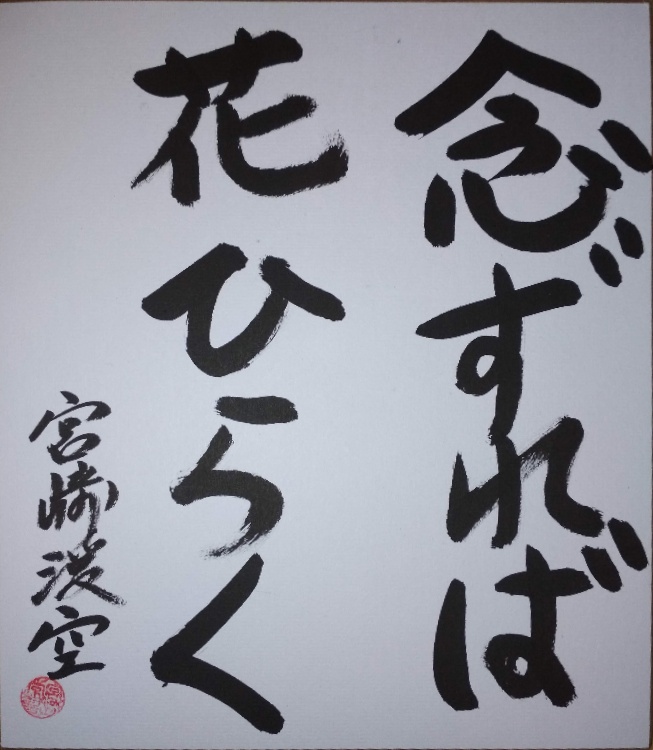 念ずれば
花ひらく
宮崎 空